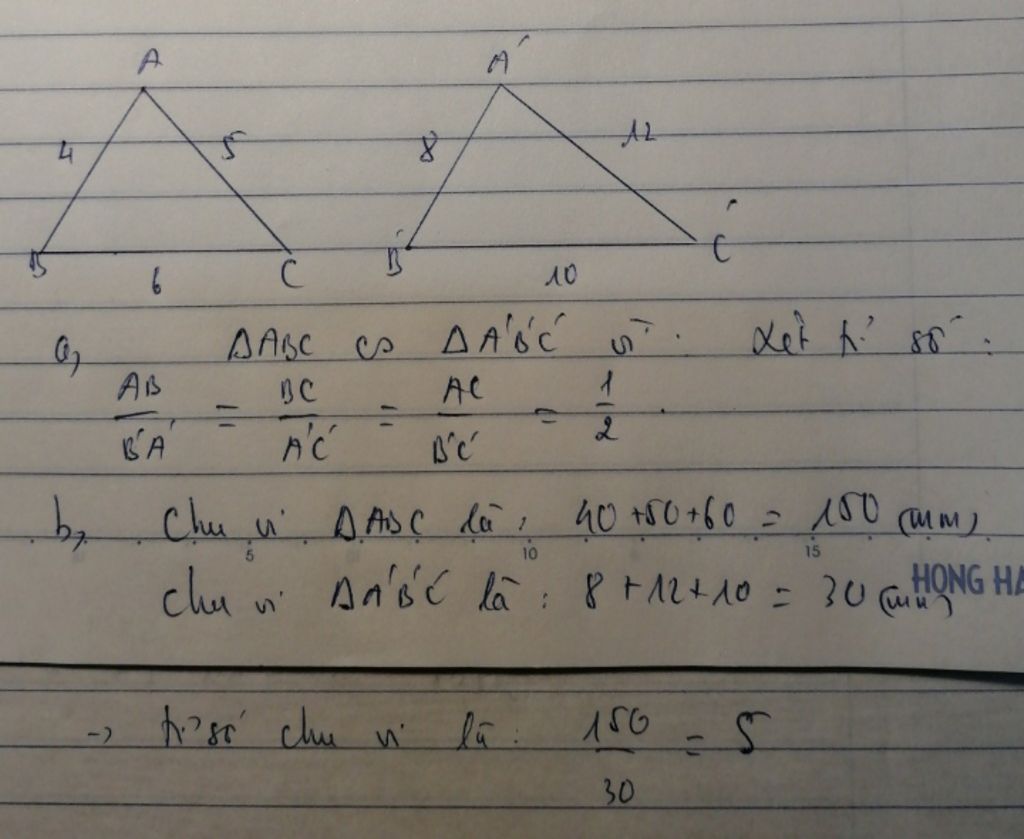 A A'
4 5 8 12
B C B' C'
6 10
a, ΔABC ∽ ΔA'B'C' vì: Xét tỉ số:
AB/B'A' = BC/A'C' = AC/B'C' = 1/2.
b, Chu vi ΔABC là: 40+50+60 = 150 (mm)
5 10 15
HONG HA
Chu vi ΔA'B'C' là: 8+12+10 = 30 (mm)
-> tỉ số chu vi là: 150/30 = 5